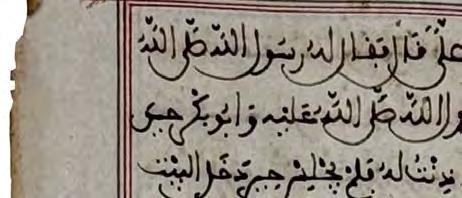 صلّى قال فقال له رسول الله صلّى الله
ول الله صلّى الله عليه وابو بكر حين
ذنت له فلم يجلس حين دخل البيت